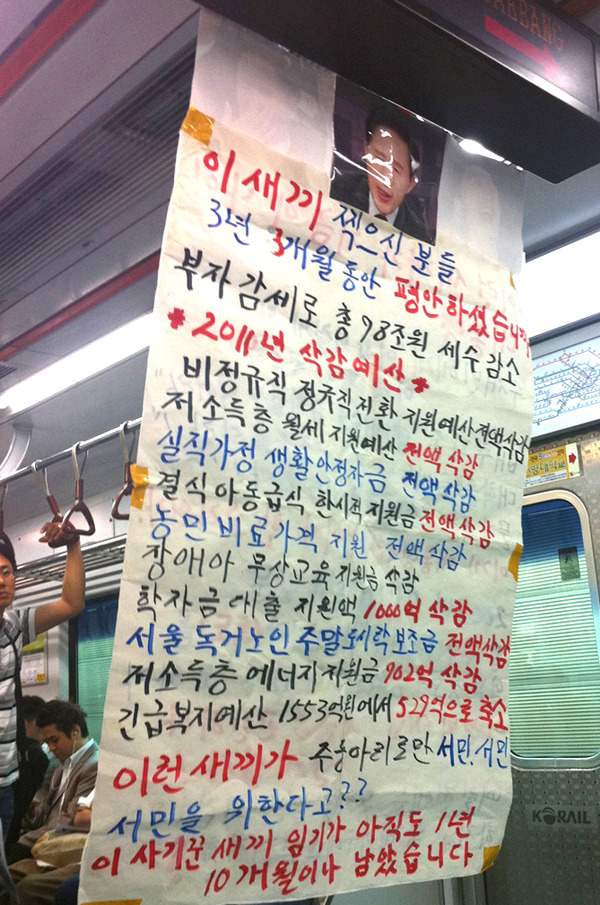 이 새끼 찍으신 분들
3년 3개월 동안 평안하셨습니까
부자감세로 총 98조원 세수 감소
* 2011년 삭감예산 *
비정규직 정규직전환 지원예산 전액삭감
저소득층 월세 지원예산 전액 삭감
실직가정 생활안정자금 전액 삭감
결식아동급식 한시적 지원금 전액 삭감
농민 비료가격 지원 전액 삭감
장애아 무상교육 지원금 삭감
학자금 대출 지원액 1000억 삭감
서울 독거노인 주말도시락 보조금 전액삭감
저소득층 에너지지원금 902억 삭감
긴급복지예산 1553억원에서 529억으로 축소
이런 새끼가 주둥아리로만 서민, 서민
서민을 위한다고??
이 사기꾼 새끼 임기가 아직도 1년
10개월이나 남았습니다
KORAIL